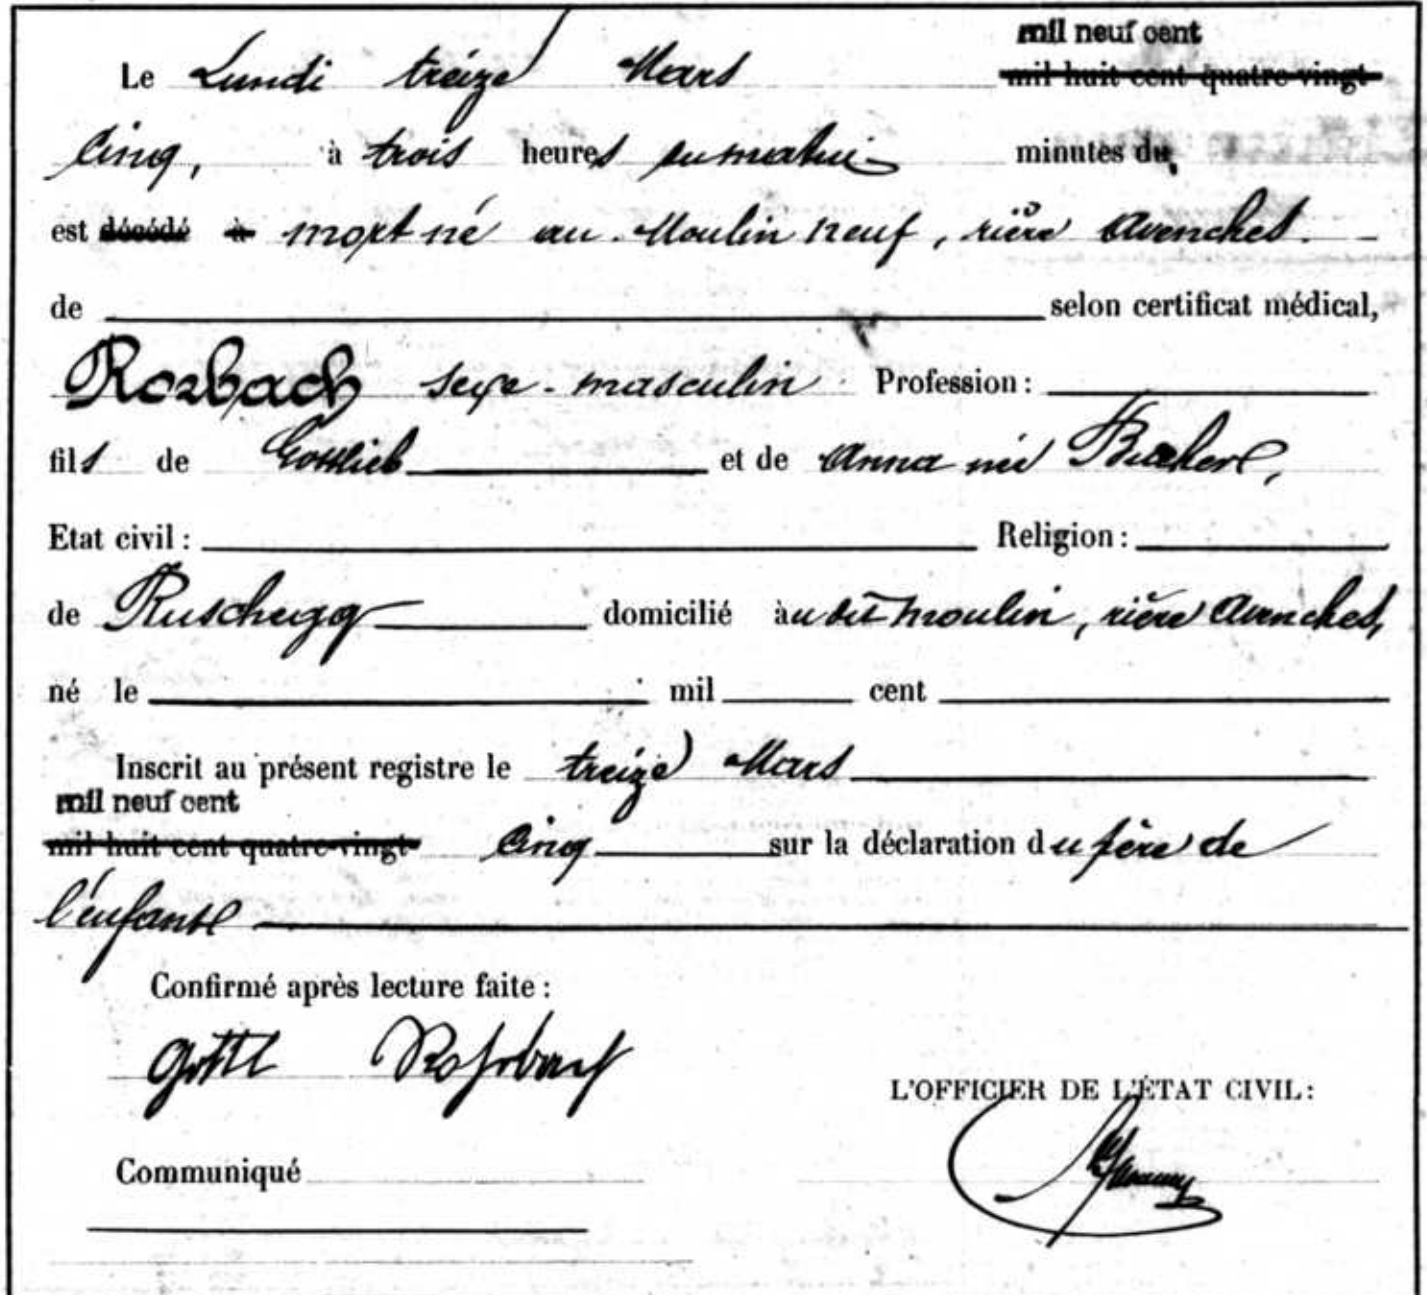 mil neuf cent
Le Lundi treize Mars mil huit cent quatre-vingt
Cinq, à trois heures du matin minutes du
est décédé à mort né au Moulin neuf, rière Avenches.
de selon certificat médical,
Rosbach sexe masculin Profession:
fils de Gottlieb et de Anna née
Etat civil: Religion:
de Ruschegg domicilié au dit moulin, rière Avenches,
né le mil cent
Inscrit au présent registre le treize Mars
mil neuf cent
mil huit cent quatre-vingt Cinq sur la déclaration du père de
l'enfant
Confirmé après lecture faite:
Gottl
L'OFFICIER DE L'ÉTAT CIVIL:
Communiqué